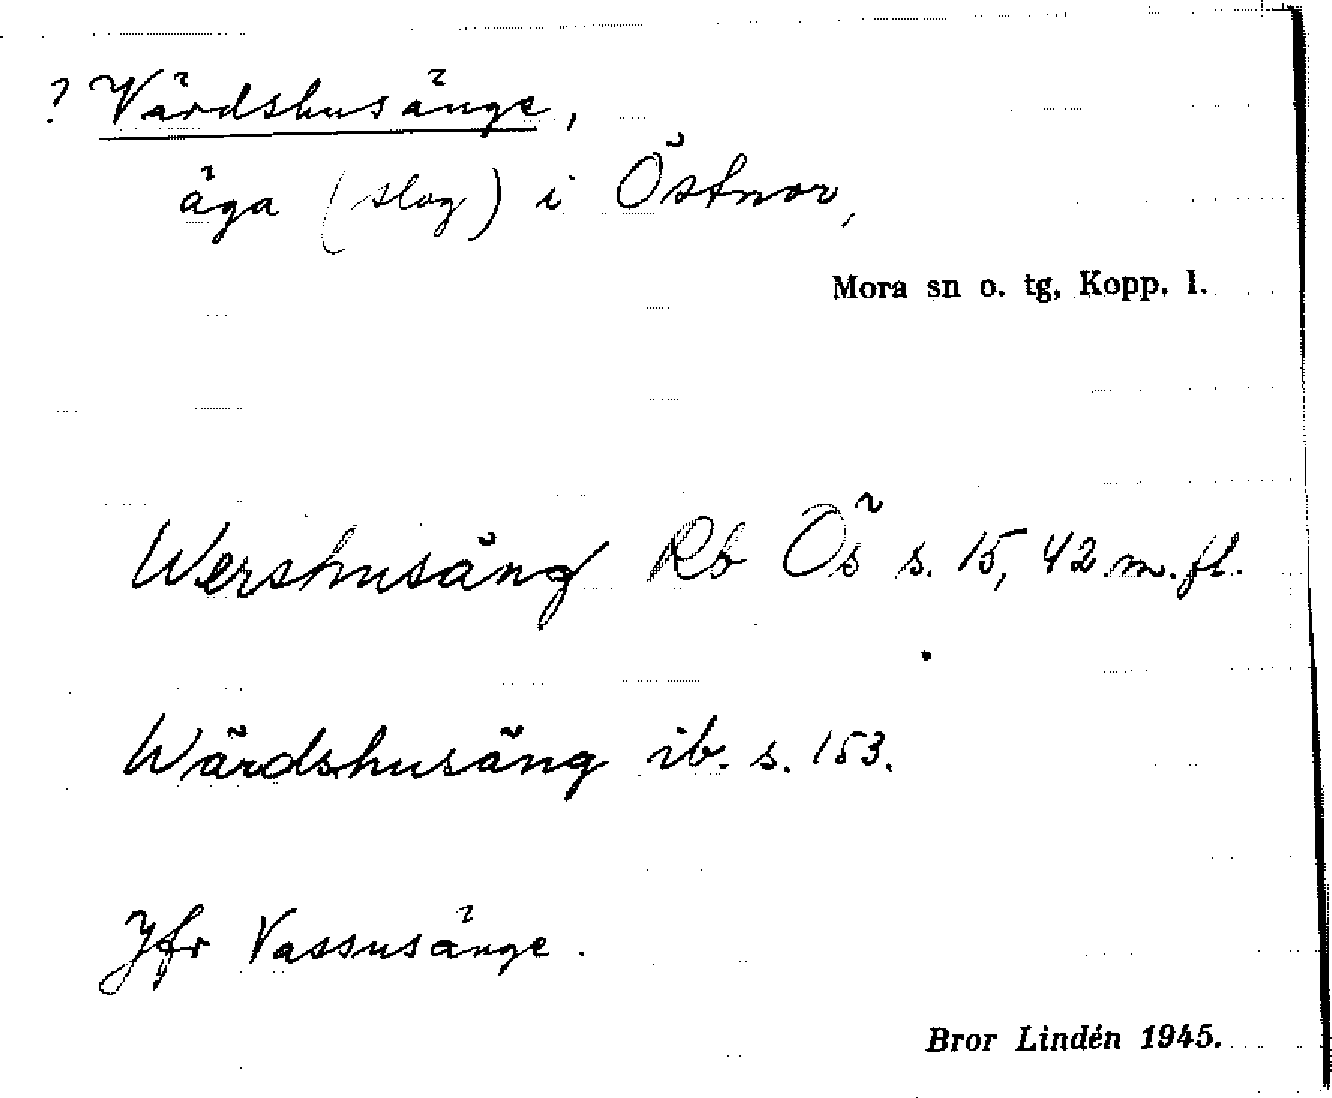 ? Värdshusänge,
äga (slog) i Östnor,
Mora sn o. tg, Kopp. l.
Wershusäng Rb Ös s. 15, 42 m. fl.
Wärdshusäng ib. s. 153.
Jfr Vassusänge.
Bror Lindén 1945.